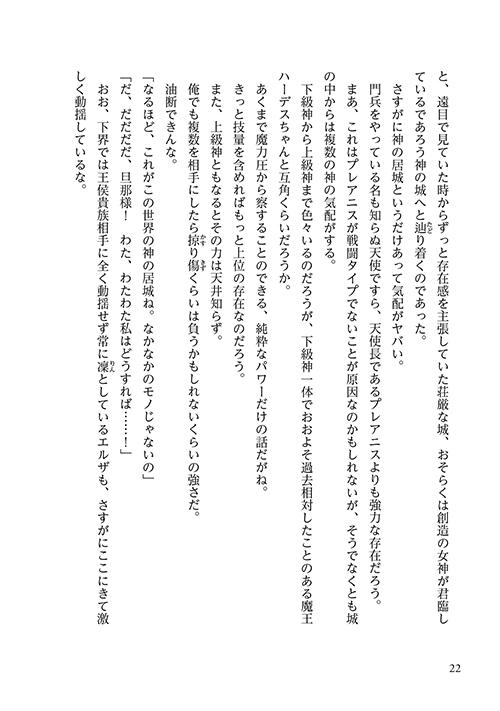 と、遠目で見ていた時からずっと存在感を主張していた荘厳な城、おそらくは創造の女神が君臨し
ているであろう神の城へと辿り着くのであった。
さすがに神の居城というだけあって気配がヤバい。
門兵をやっている名も知らぬ天使ですら、天使長であるプレアニスよりも強力な存在だろう。
まあ、これはプレアニスが戦闘タイプでないことが原因なのかもしれないが、そうでなくとも城
の中からは複数の神の気配がする。
下級神から上級神まで色々いるのだろうが、下級神一体でおおよそ過去相対したことのある魔王
ハーデスちゃんと互角くらいだろうか。
あくまで魔力圧から察することのできる、純粋なパワーだけの話だがね。
きっと技量を含めればもっと上位の存在なのだろう。
また、上級神ともなるとその力は天井知らず。
俺でも複数を相手にしたら掠り傷くらいは負うかもしれないくらいの強さだ。
油断できんな。
「なるほど、これがこの世界の神の居城ね。なかなかのモノじゃないの」
「だ、だだだだ、旦那様！　わた、わたわた私はどうすれば……！」
おお、下界では王侯貴族相手に全く動揺せず常に凜としているエルザも、さすがにここにきて激
しく動揺しているな。
22